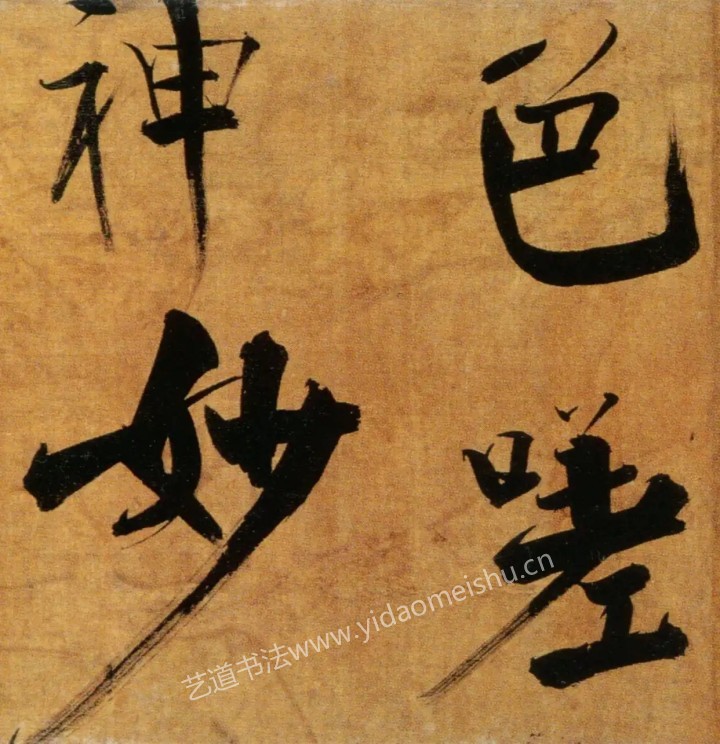 色嗟
神妙
艺道书法www.yidaomeishu.cn